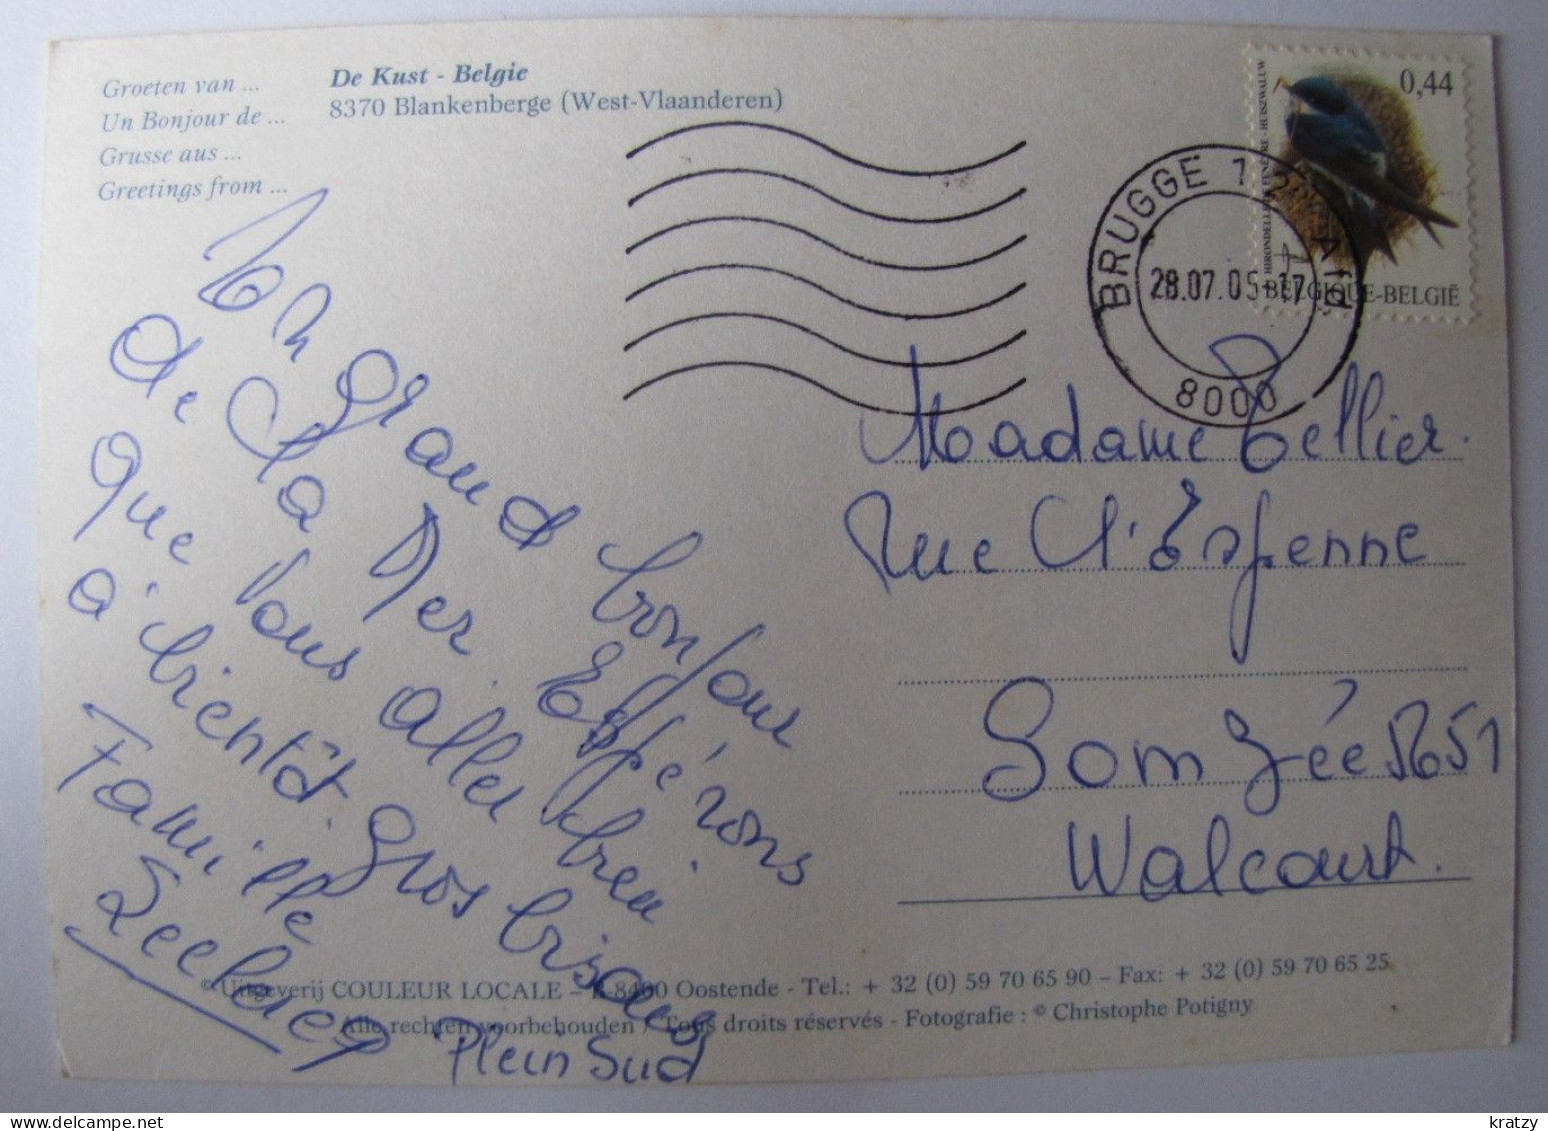 Groeten van ...
Un Bonjour de ...
Grusse aus ...
Greetings from ...
De Kust - Belgie
8370 Blankenberge (West-Vlaanderen)
0,44
HUISZWALUW
BELGIQUE-BELGIË
BRUGGE 1
28.07.05-17
8000
Un Grand bonjour
de la Mer Espérons
que vous allez bien
à bientôt Gros bisous
Famille
Plein Sud
Madame Tellier.
Rue
Somzée 5651
Walcourt.
© Uitgeverij COULEUR LOCALE – B-8400 Oostende - Tel.: + 32 (0) 59 70 65 90 – Fax: + 32 (0) 59 70 65 25
Alle rechten voorbehouden / Tous droits réservés - Fotografie : © Christophe Potigny
kratzy